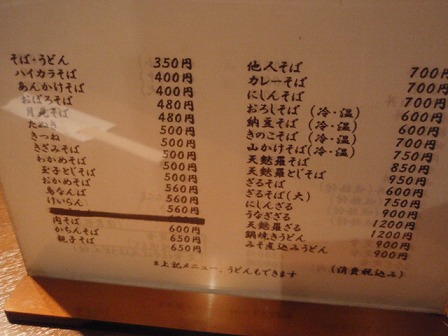 そば・うどん 350円
ハイカラそば 400円
あんかけそば 400円
おぼろそば 480円
月見そば 480円
たぬき 500円
きつね 500円
きざみそば 500円
わかめそば 500円
玉子とじそば 500円
おかめそば 560円
鳥なんば 560円
けいらん 560円
肉そば 600円
かちんそば 650円
親子そば 650円
他人そば 700円
カレーそば 700円
にしんそば 700円
おろしそば(冷・温) 600円
納豆そば(冷・温) 600円
きのこそば(冷・温) 700円
山かけそば(冷・温) 750円
天麩羅そば 850円
天麩羅とじそば 950円
ざるそば 600円
ざるそば(大) 750円
にしんざる 900円
うなぎざる 1200円
天麩羅ざる 1200円
鍋焼きうどん 900円
みそ煮込みうどん 900円
※上記メニュー、うどんもできます (消費税込み)